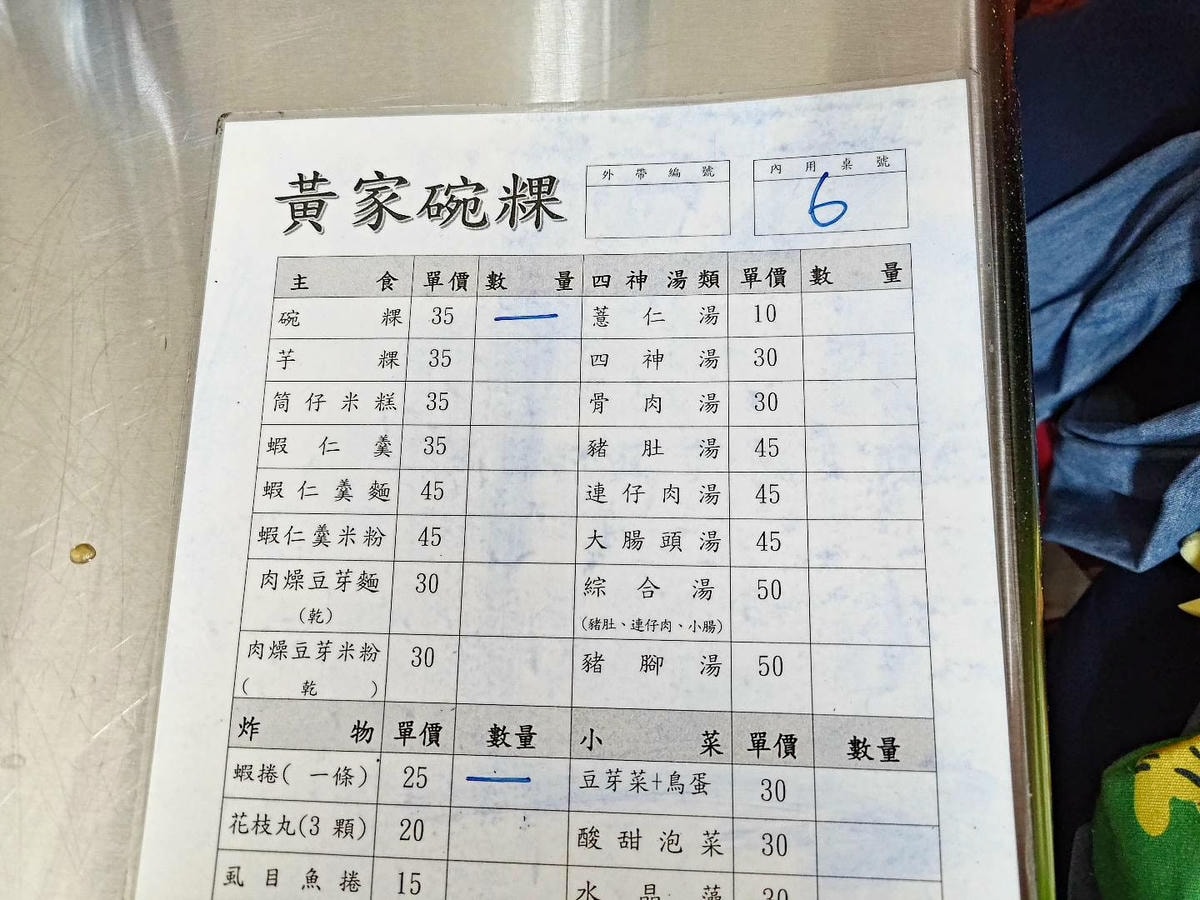 黃家碗粿 外帶編號 內用桌號
6
主食 單價 數量 四神湯類 單價 數量
碗粿 35 一 薏仁湯 10
芋粿 35 四神湯 30
筒仔米糕 35 骨肉湯 30
蝦仁羹 35 豬肚湯 45
蝦仁羹麵 45 連仔肉湯 45
蝦仁羹米粉 45 大腸頭湯 45
肉燥豆芽麵 30 綜合湯 50
(乾) (豬肚、連仔肉、小腸)
肉燥豆芽米粉 30 豬腳湯 50
(乾)
炸物 單價 數量 小菜 單價 數量
蝦捲(一條) 25 一 豆芽菜+鳥蛋 30
花枝丸(3 顆) 20 酸甜泡菜 30
虱目魚捲 15 水晶藻 30